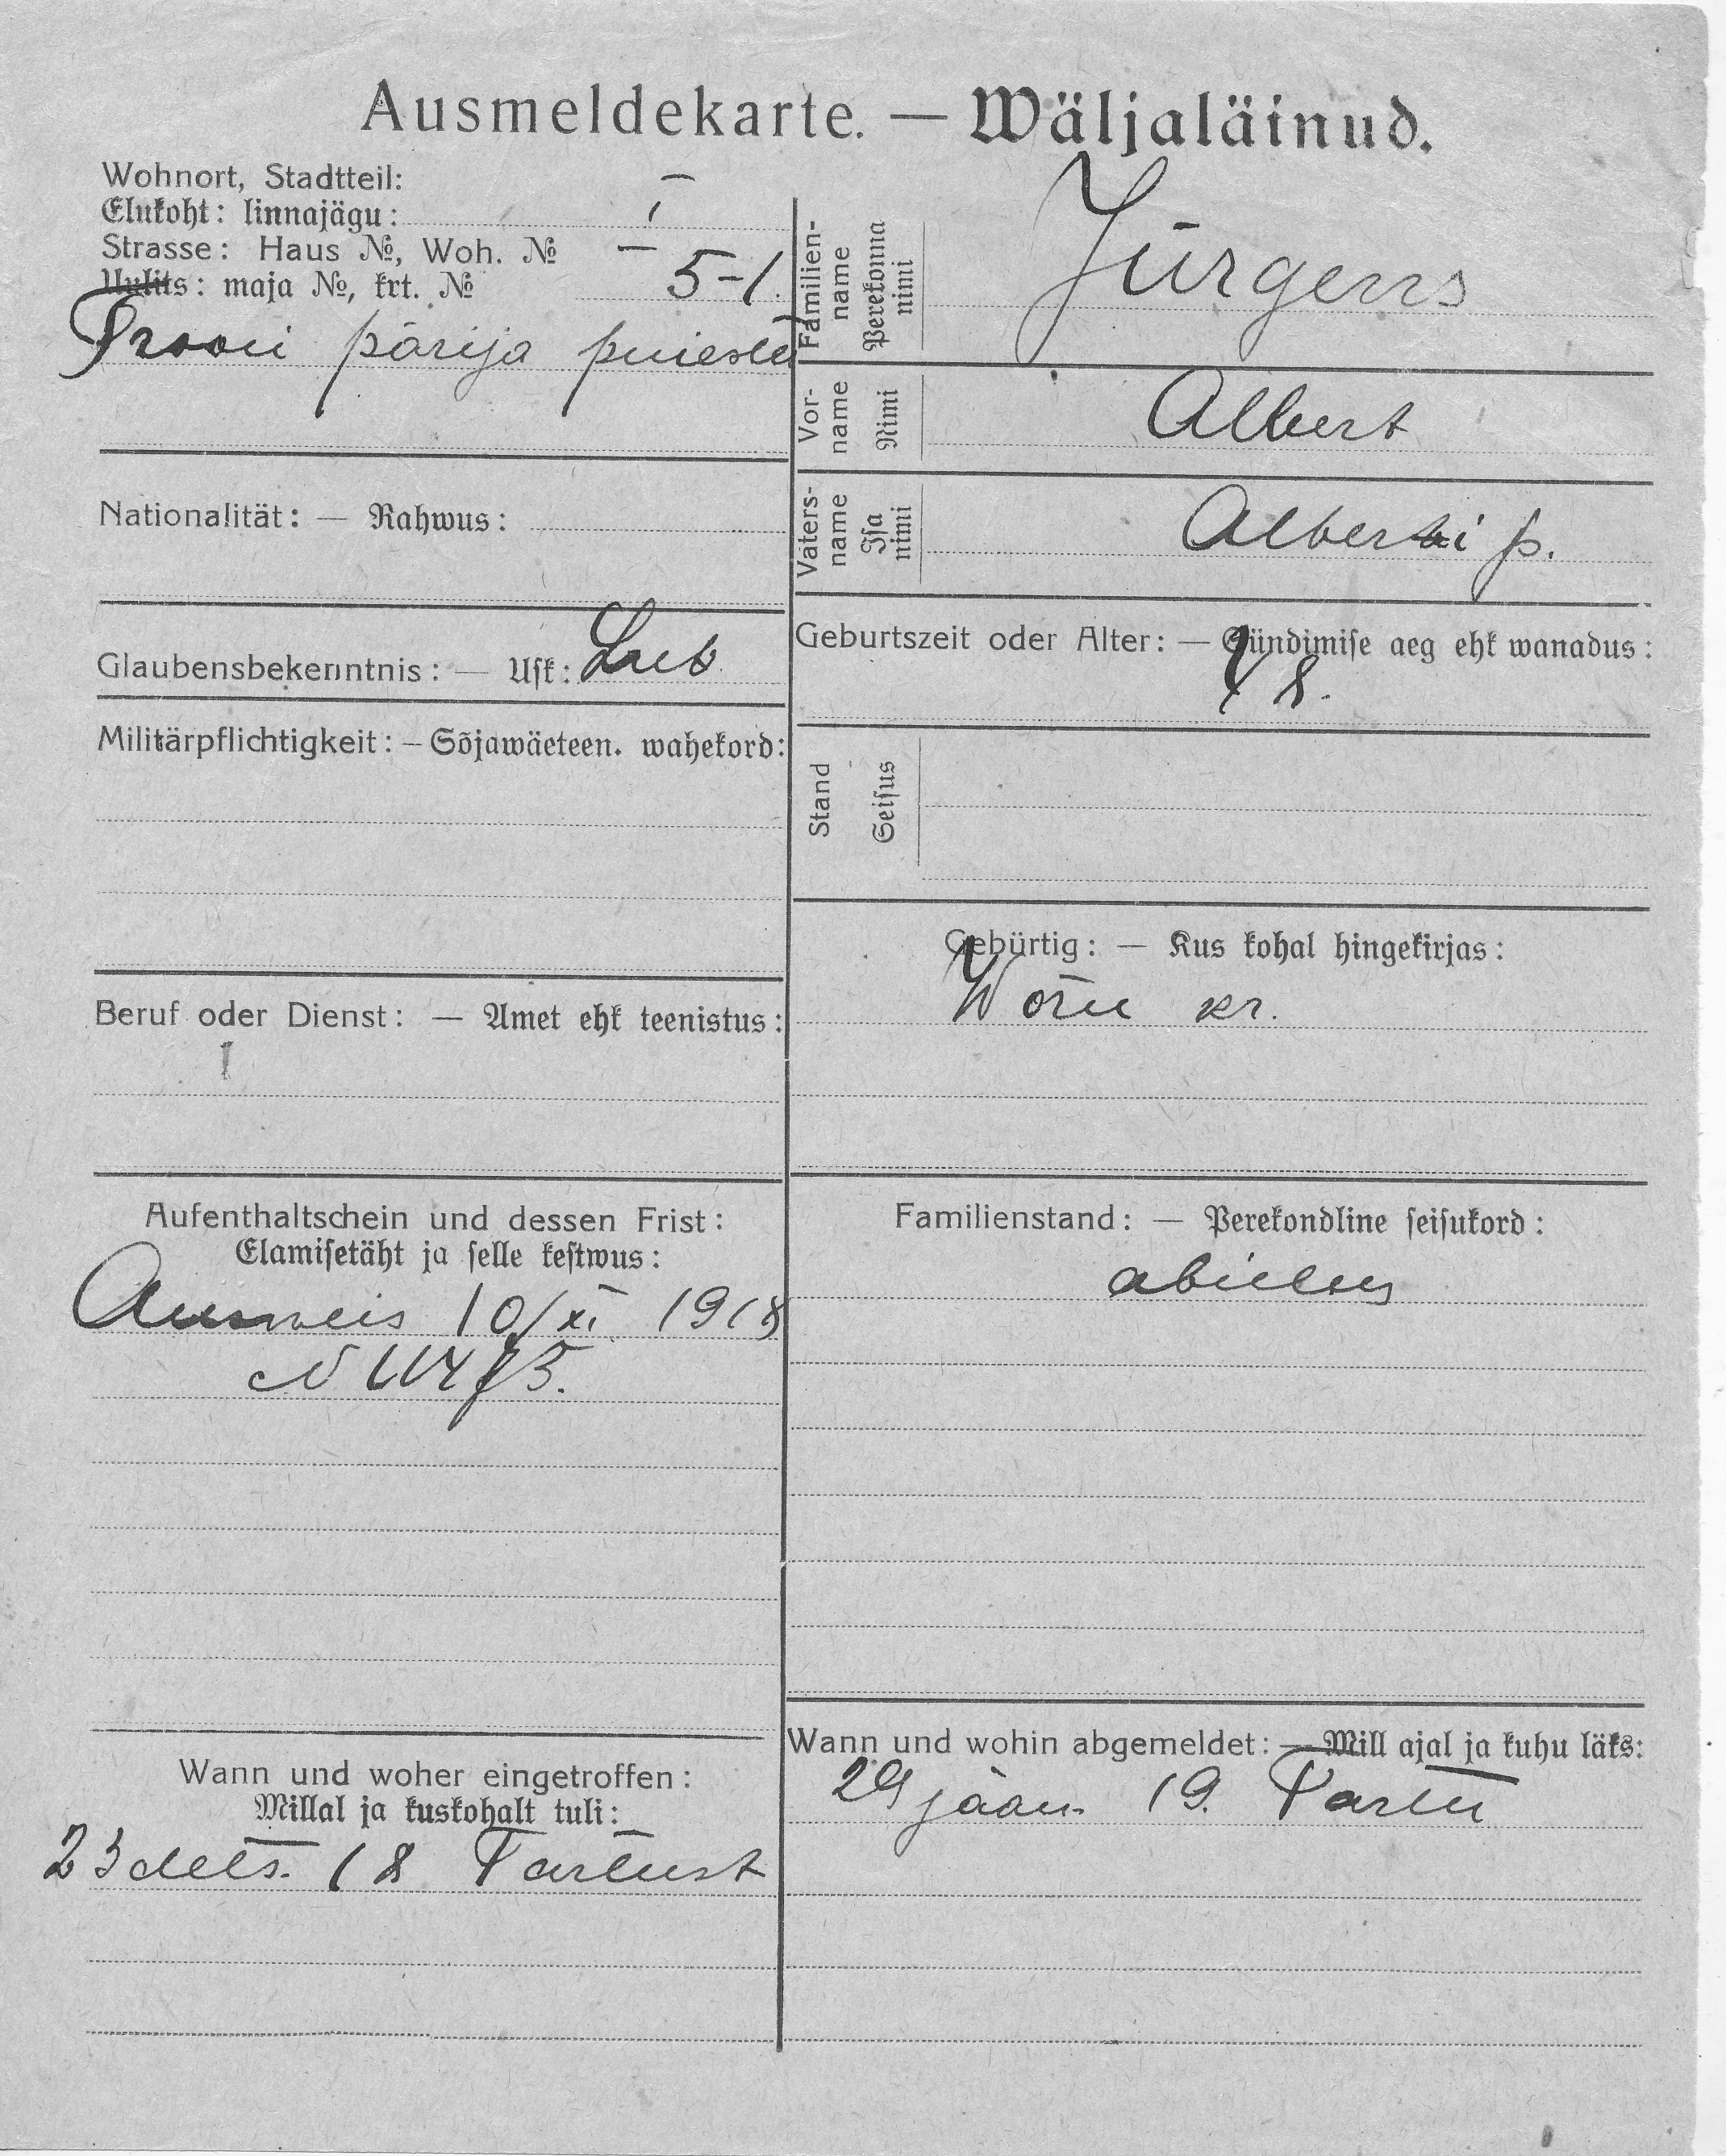 Ausmeldekarte. — Wäljaläinud.
Wohnort, Stadtteil:
Elukoht: linnajägu: I
Strasse: Haus №, Woh. №
Uulits: maja №, krt. № 5-1.
Trooni pärija puieste
Familien-name Perekonna nimi Jürgens
Vor-name Nimi Albert
Vaters-name Isa nimi Alberti p.
Nationalität: — Rahwus:
Glaubensbekenntnis: — Usk: Lut
Geburtszeit oder Alter: — Sündimise aeg ehk wanadus:
48.
Militärpflichtigkeit: — Sõjawäeteen. wahekord:
Stand Seisus
Gebürtig: — Kus kohal hingekirjas:
Woru kr.
Beruf oder Dienst: — Amet ehk teenistus:
Aufenthaltschein und dessen Frist:
Elamisetäht ja selle kestwus:
Ausweis 10/XI 1918
Familienstand: — Perekondline seisukord:
abielus
Wann und woher eingetroffen:
Millal ja kuskohalt tuli:
23 dets. 18 Tartust
Wann und wohin abgemeldet: — Mill ajal ja kuhu läks:
29 jaan. 19. Tartu